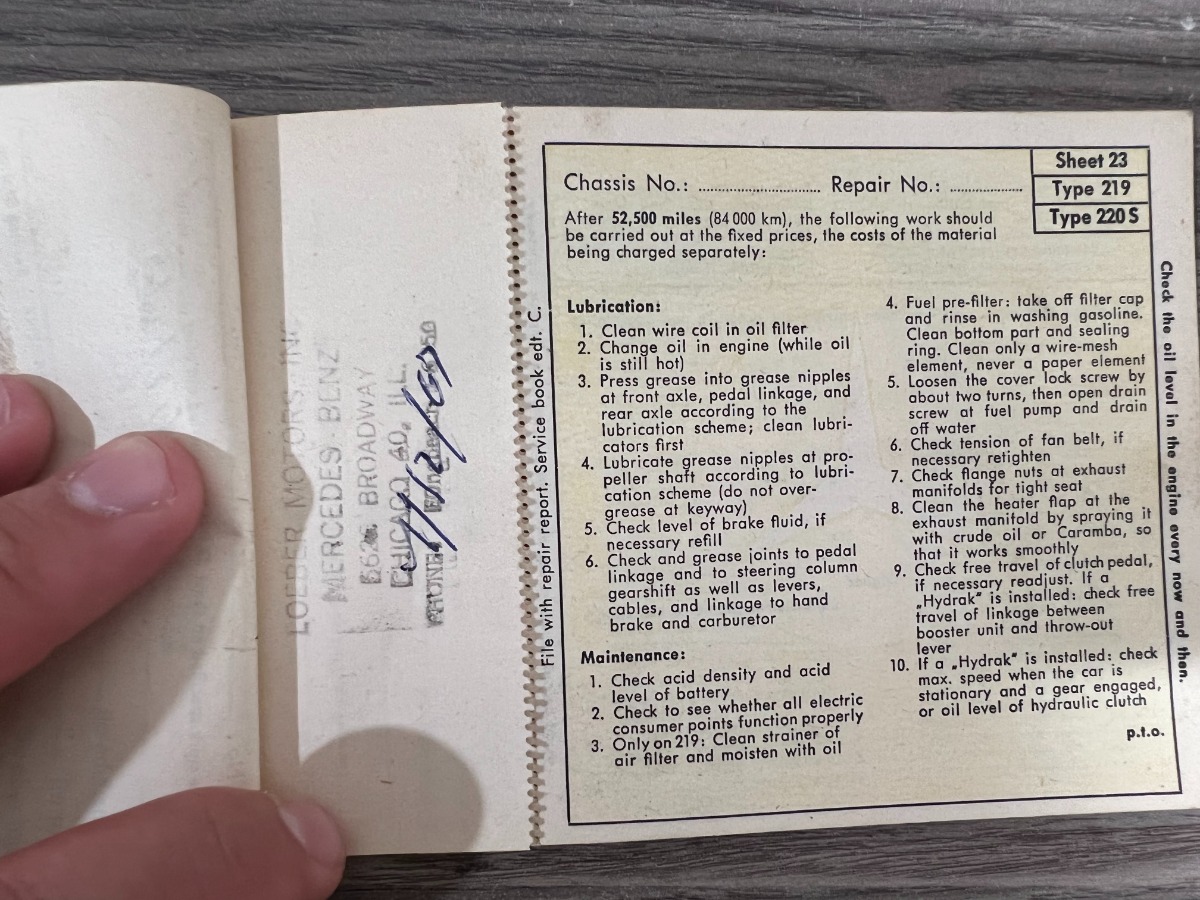 LOEBER MOTORS, IN
MERCEDES-BENZ
BROADWA
CHICAGO 40, ILL
PHONE:
File with repair report. Service book edt. C.
Chassis No.: .............................. Repair No.: ..................
Sheet 23
Type 219
Type 220 S
After 52,500 miles (84 000 km), the following work should
be carried out at the fixed prices, the costs of the material
being charged separately:
Lubrication:
1. Clean wire coil in oil filter
2. Change oil in engine (while oil
is still hot)
3. Press grease into grease nipples
at front axle, pedal linkage, and
rear axle according to the
lubrication scheme; clean lubri-
cators first
4. Lubricate grease nipples at pro-
peller shaft according to lubri-
cation scheme (do not over-
grease at keyway)
5. Check level of brake fluid, if
necessary refill
6. Check and grease joints to pedal
linkage and to steering column
gearshift as well as levers,
cables, and linkage to hand
brake and carburetor
Maintenance:
1. Check acid density and acid
level of battery
2. Check to see whether all electric
consumer points function properly
3. Only on 219: Clean strainer of
air filter and moisten with oil
4. Fuel pre-filter: take off filter cap
and rinse in washing gasoline.
Clean bottom part and sealing
ring. Clean only a wire-mesh
element, never a paper element
5. Loosen the cover lock screw by
about two turns, then open drain
screw at fuel pump and drain
off water
6. Check tension of fan belt, if
necessary retighten
7. Check flange nuts at exhaust
manifolds for tight seat
8. Clean the heater flap at the
exhaust manifold by spraying it
with crude oil or Caramba, so
that it works smoothly
9. Check free travel of clutch pedal,
if necessary readjust. If a
„Hydrak" is installed: check free
travel of linkage between
booster unit and throw-out
lever
10. If a „Hydrak" is installed: check
max. speed when the car is
stationary and a gear engaged,
or oil level of hydraulic clutch
p.t.o.
Check the oil level in the engine every now and then.